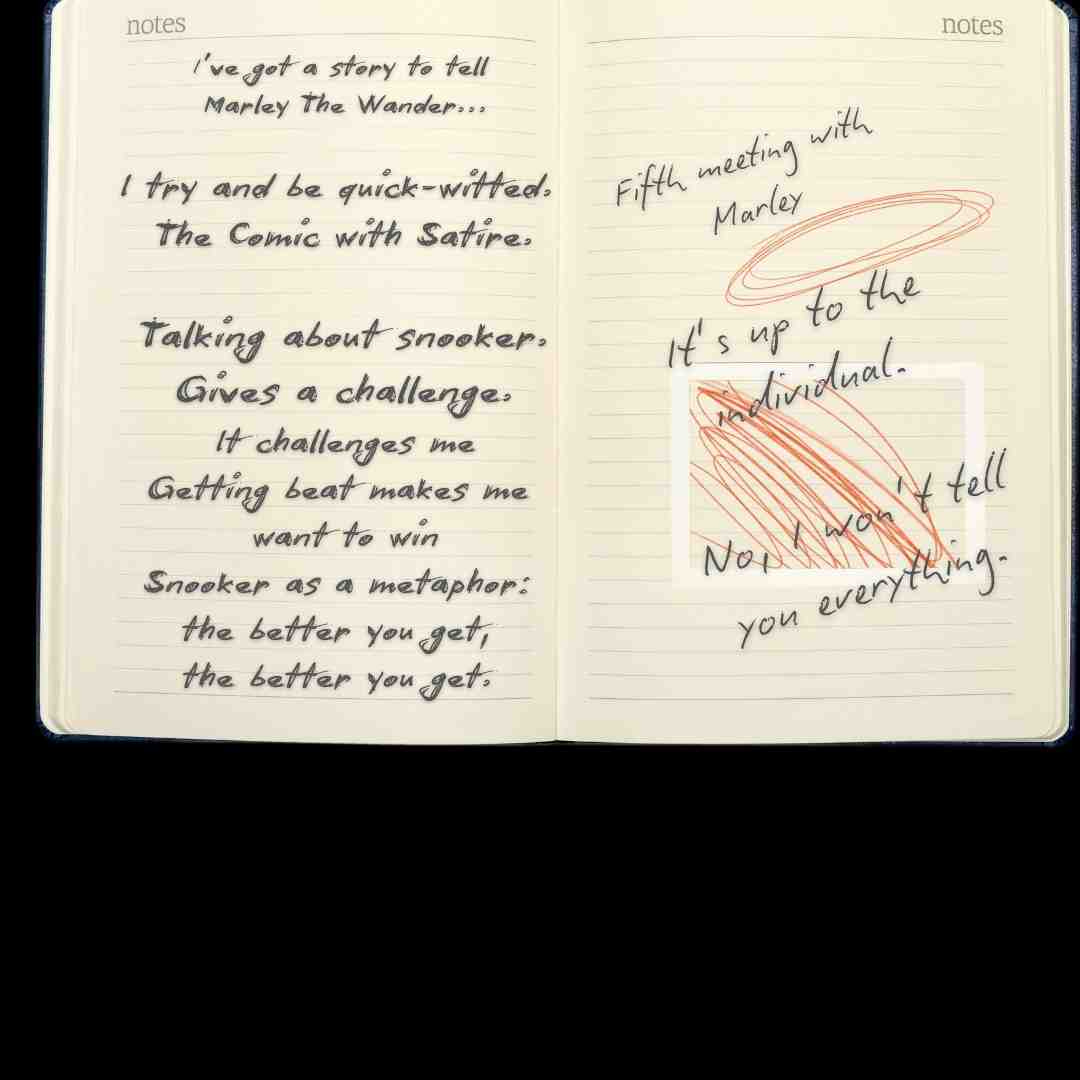 notes
I've got a story to tell
Marley The Wander...
I try and be quick-witted.
The Comic with Satire.
Talking about snooker.
Gives a challenge.
It challenges me
Getting beat makes me
want to win
Snooker as a metaphor:
the better you get,
the better you get.
notes
Fifth meeting with
Marley
It's up to the
individual.
No, I won't tell
you everything.